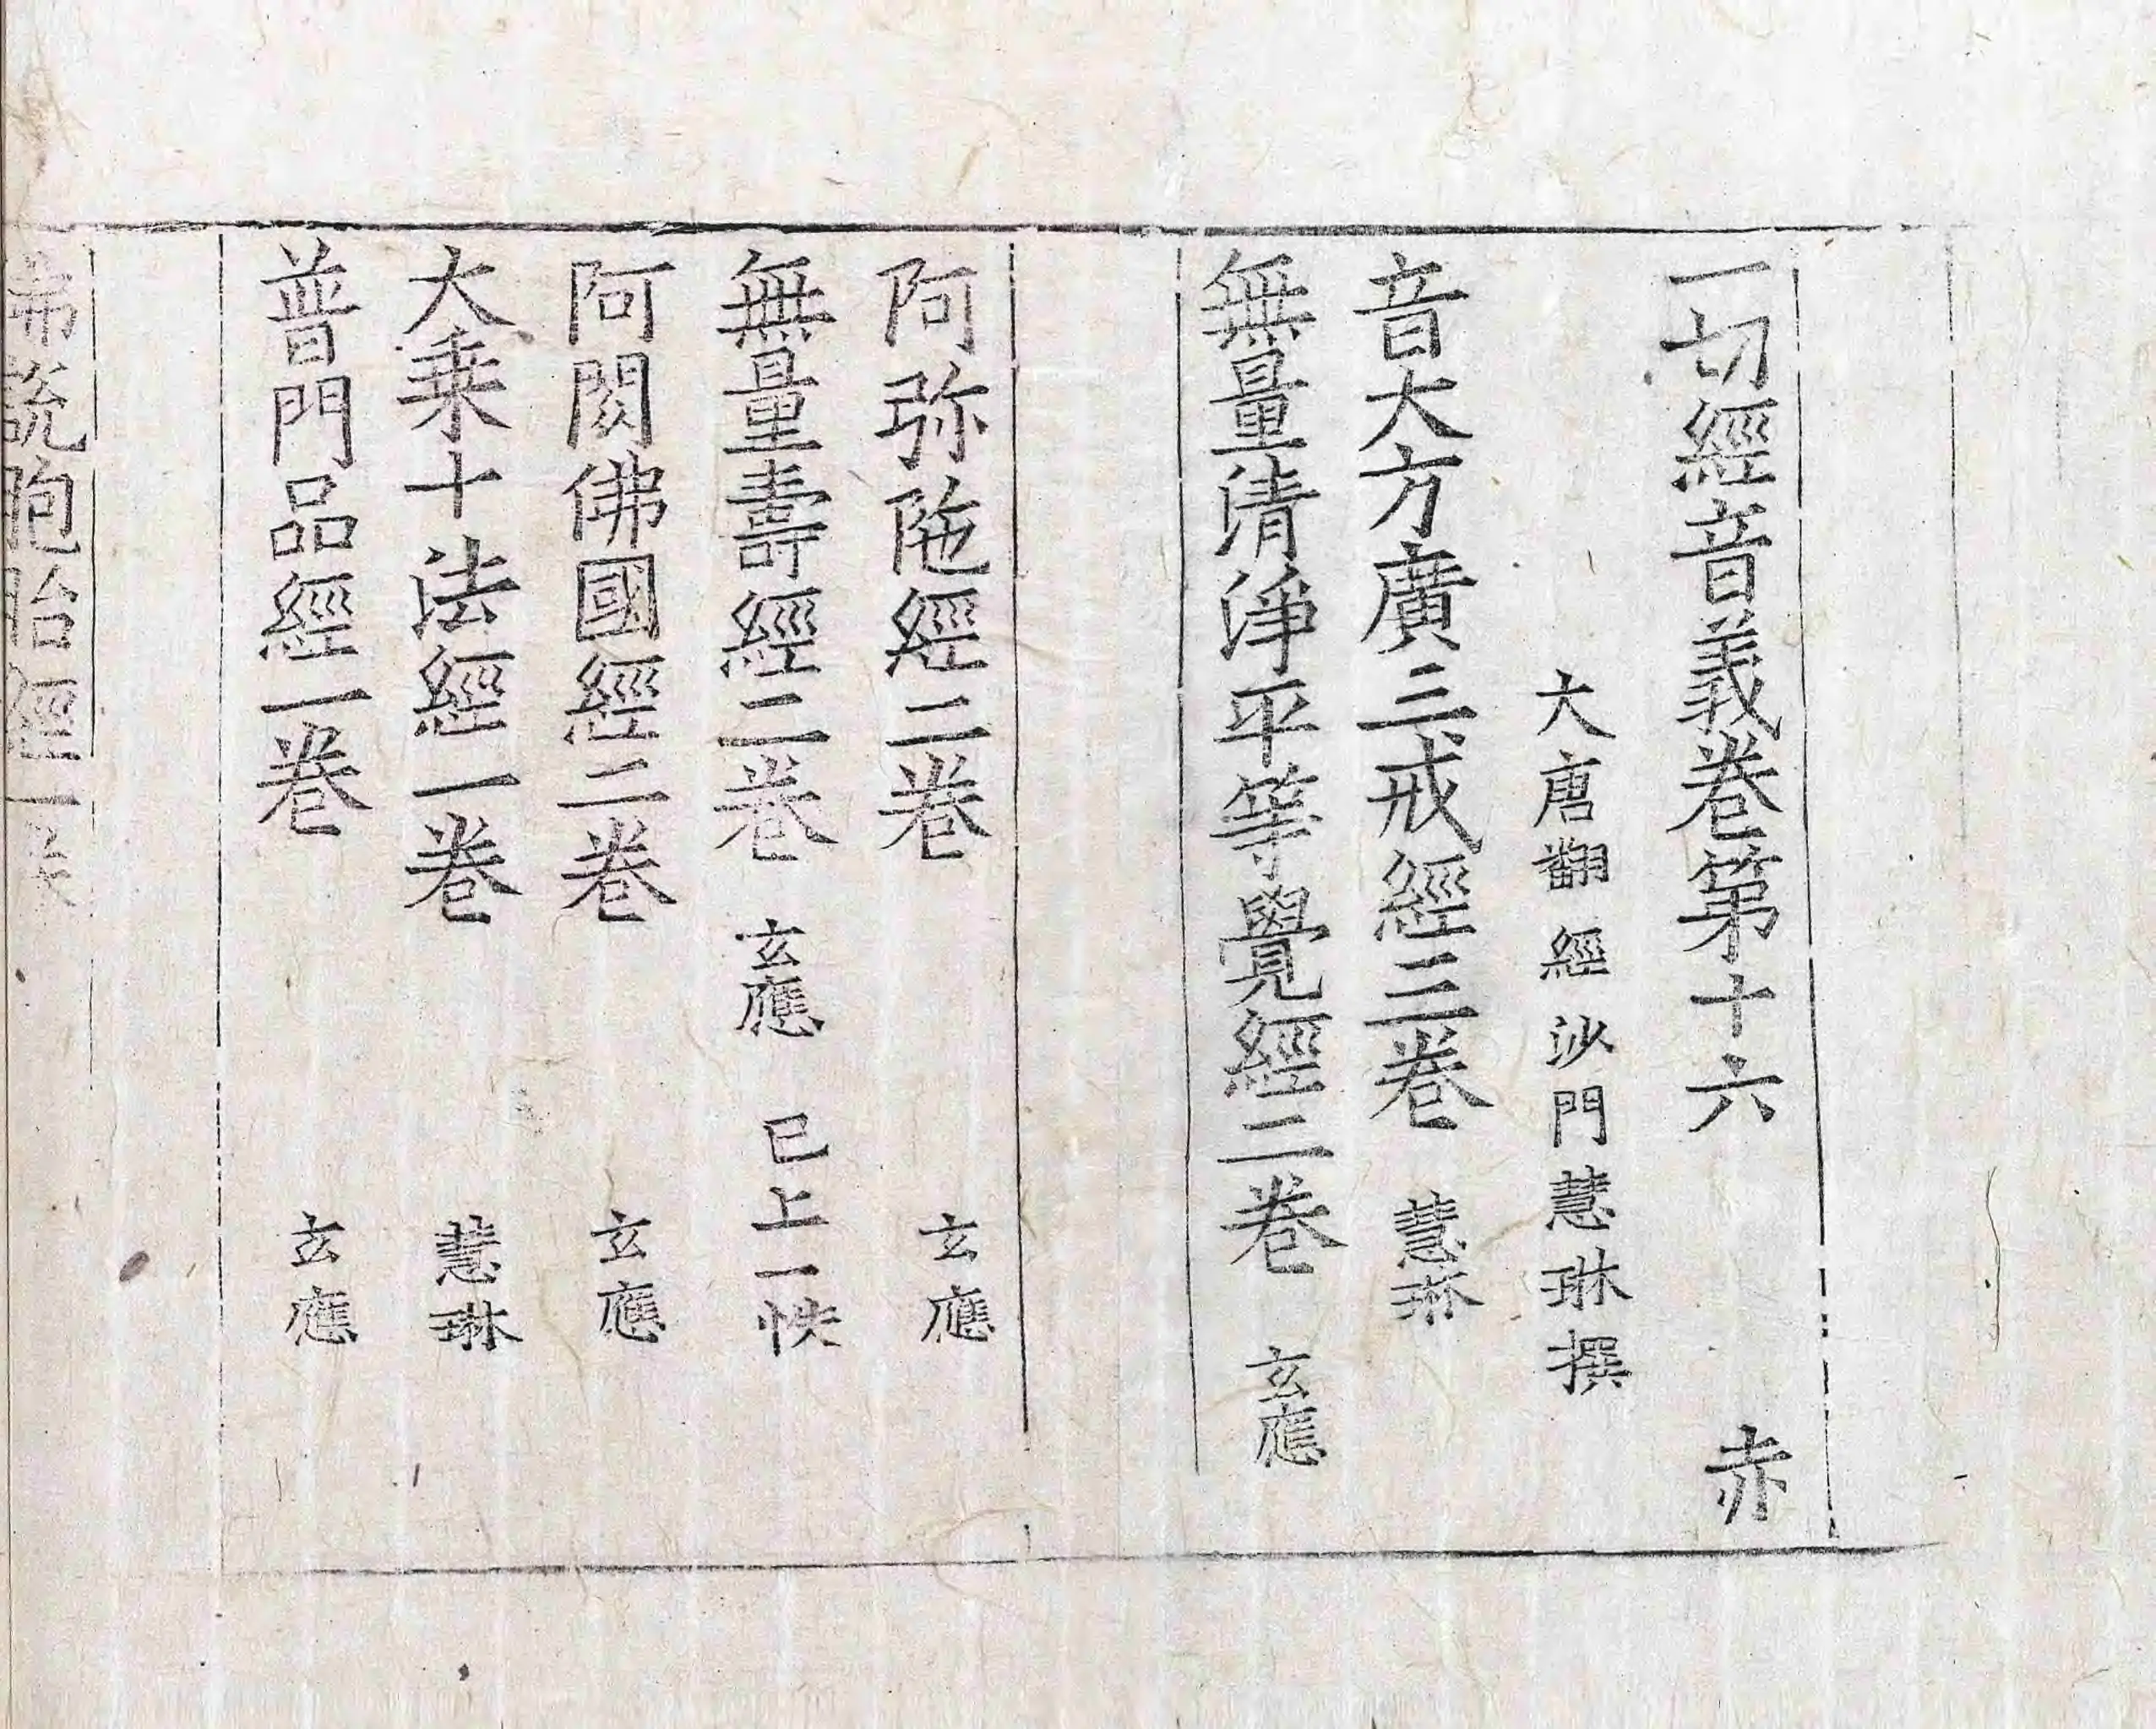 一切經音義卷第十六 赤
大唐翻經沙門慧琳撰
音大方廣三戒經三卷 慧琳
無量清淨平等覺經二卷 玄應
阿弥陁經二卷 玄應
無量壽經二卷 玄應 已上一帙
阿閦佛國經二卷 玄應
大乗十法經一卷 慧琳
普門品經一卷 玄應
說胞胎經一